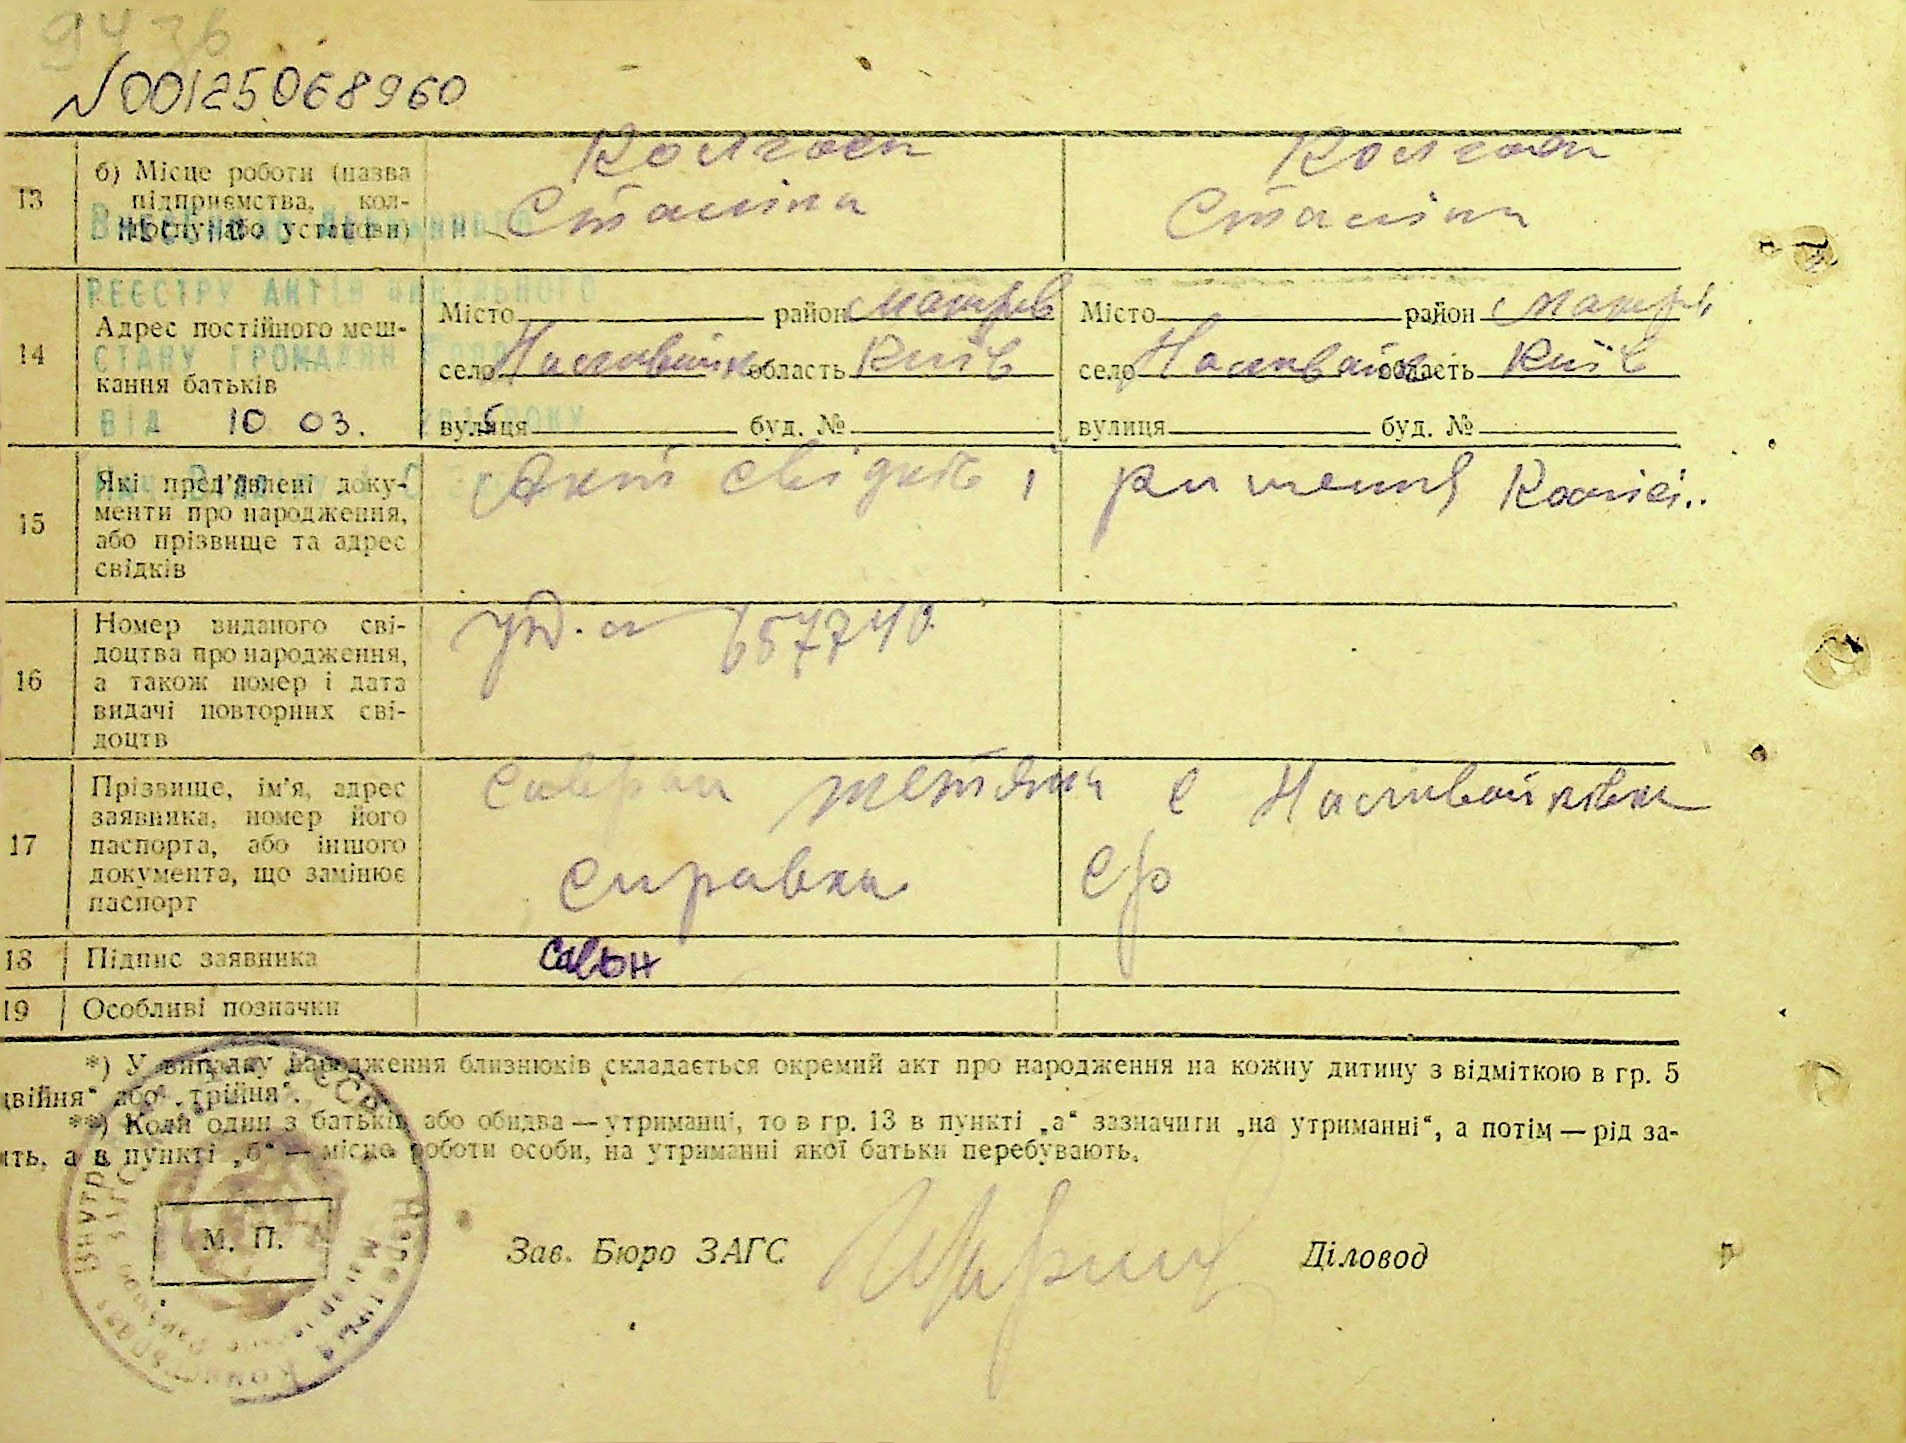 9436
N00125068960
13
б) Місце роботи (назва підприємства, колгоспу або установи)
Колгосп
Сталіна
Колгосп
Сталіна
ВНЕСЕНО ДО ДЕРЖАВНОГО
РЕЄСТРУ АКТІВ ЦИВІЛЬНОГО
СТАНУ ГРОМАДЯН
ВІД 10 03. РОКУ
14
Адрес постійного меш-
кання батьків
Місто район Макарів
село область Київ
вулиця буд. №
Місто район Макарів
село область Київ
вулиця буд. №
15
Які пред'явлені доку-
менти про народження,
або прізвище та адрес
свідків
Акт свідків і рішення Комісії..
16
Номер виданого сві-
доцтва про народження,
а також номер і дата
видачі повторних сві-
доцтв
657740
17
Прізвище, ім'я, адрес
заявника, номер його
паспорта, або іншого
документа, що замінює
паспорт
Тетяна с Наливайківка
справка с/р
18
Підпис заявника
19
Особливі позначки
*) У випадку народження близнюків складається окремий акт про народження на кожну дитину з відміткою в гр. 5
двійня" або „трійня".
**) Коли один з батьків або обидва — утриманці, то в гр. 13 в пункті „а" зазначити „на утриманні", а потім — рід за-
ять, а в пункті „б" — місце роботи особи, на утриманні якої батьки перебувають.
М. П.
Зав. Бюро ЗАГС
Діловод